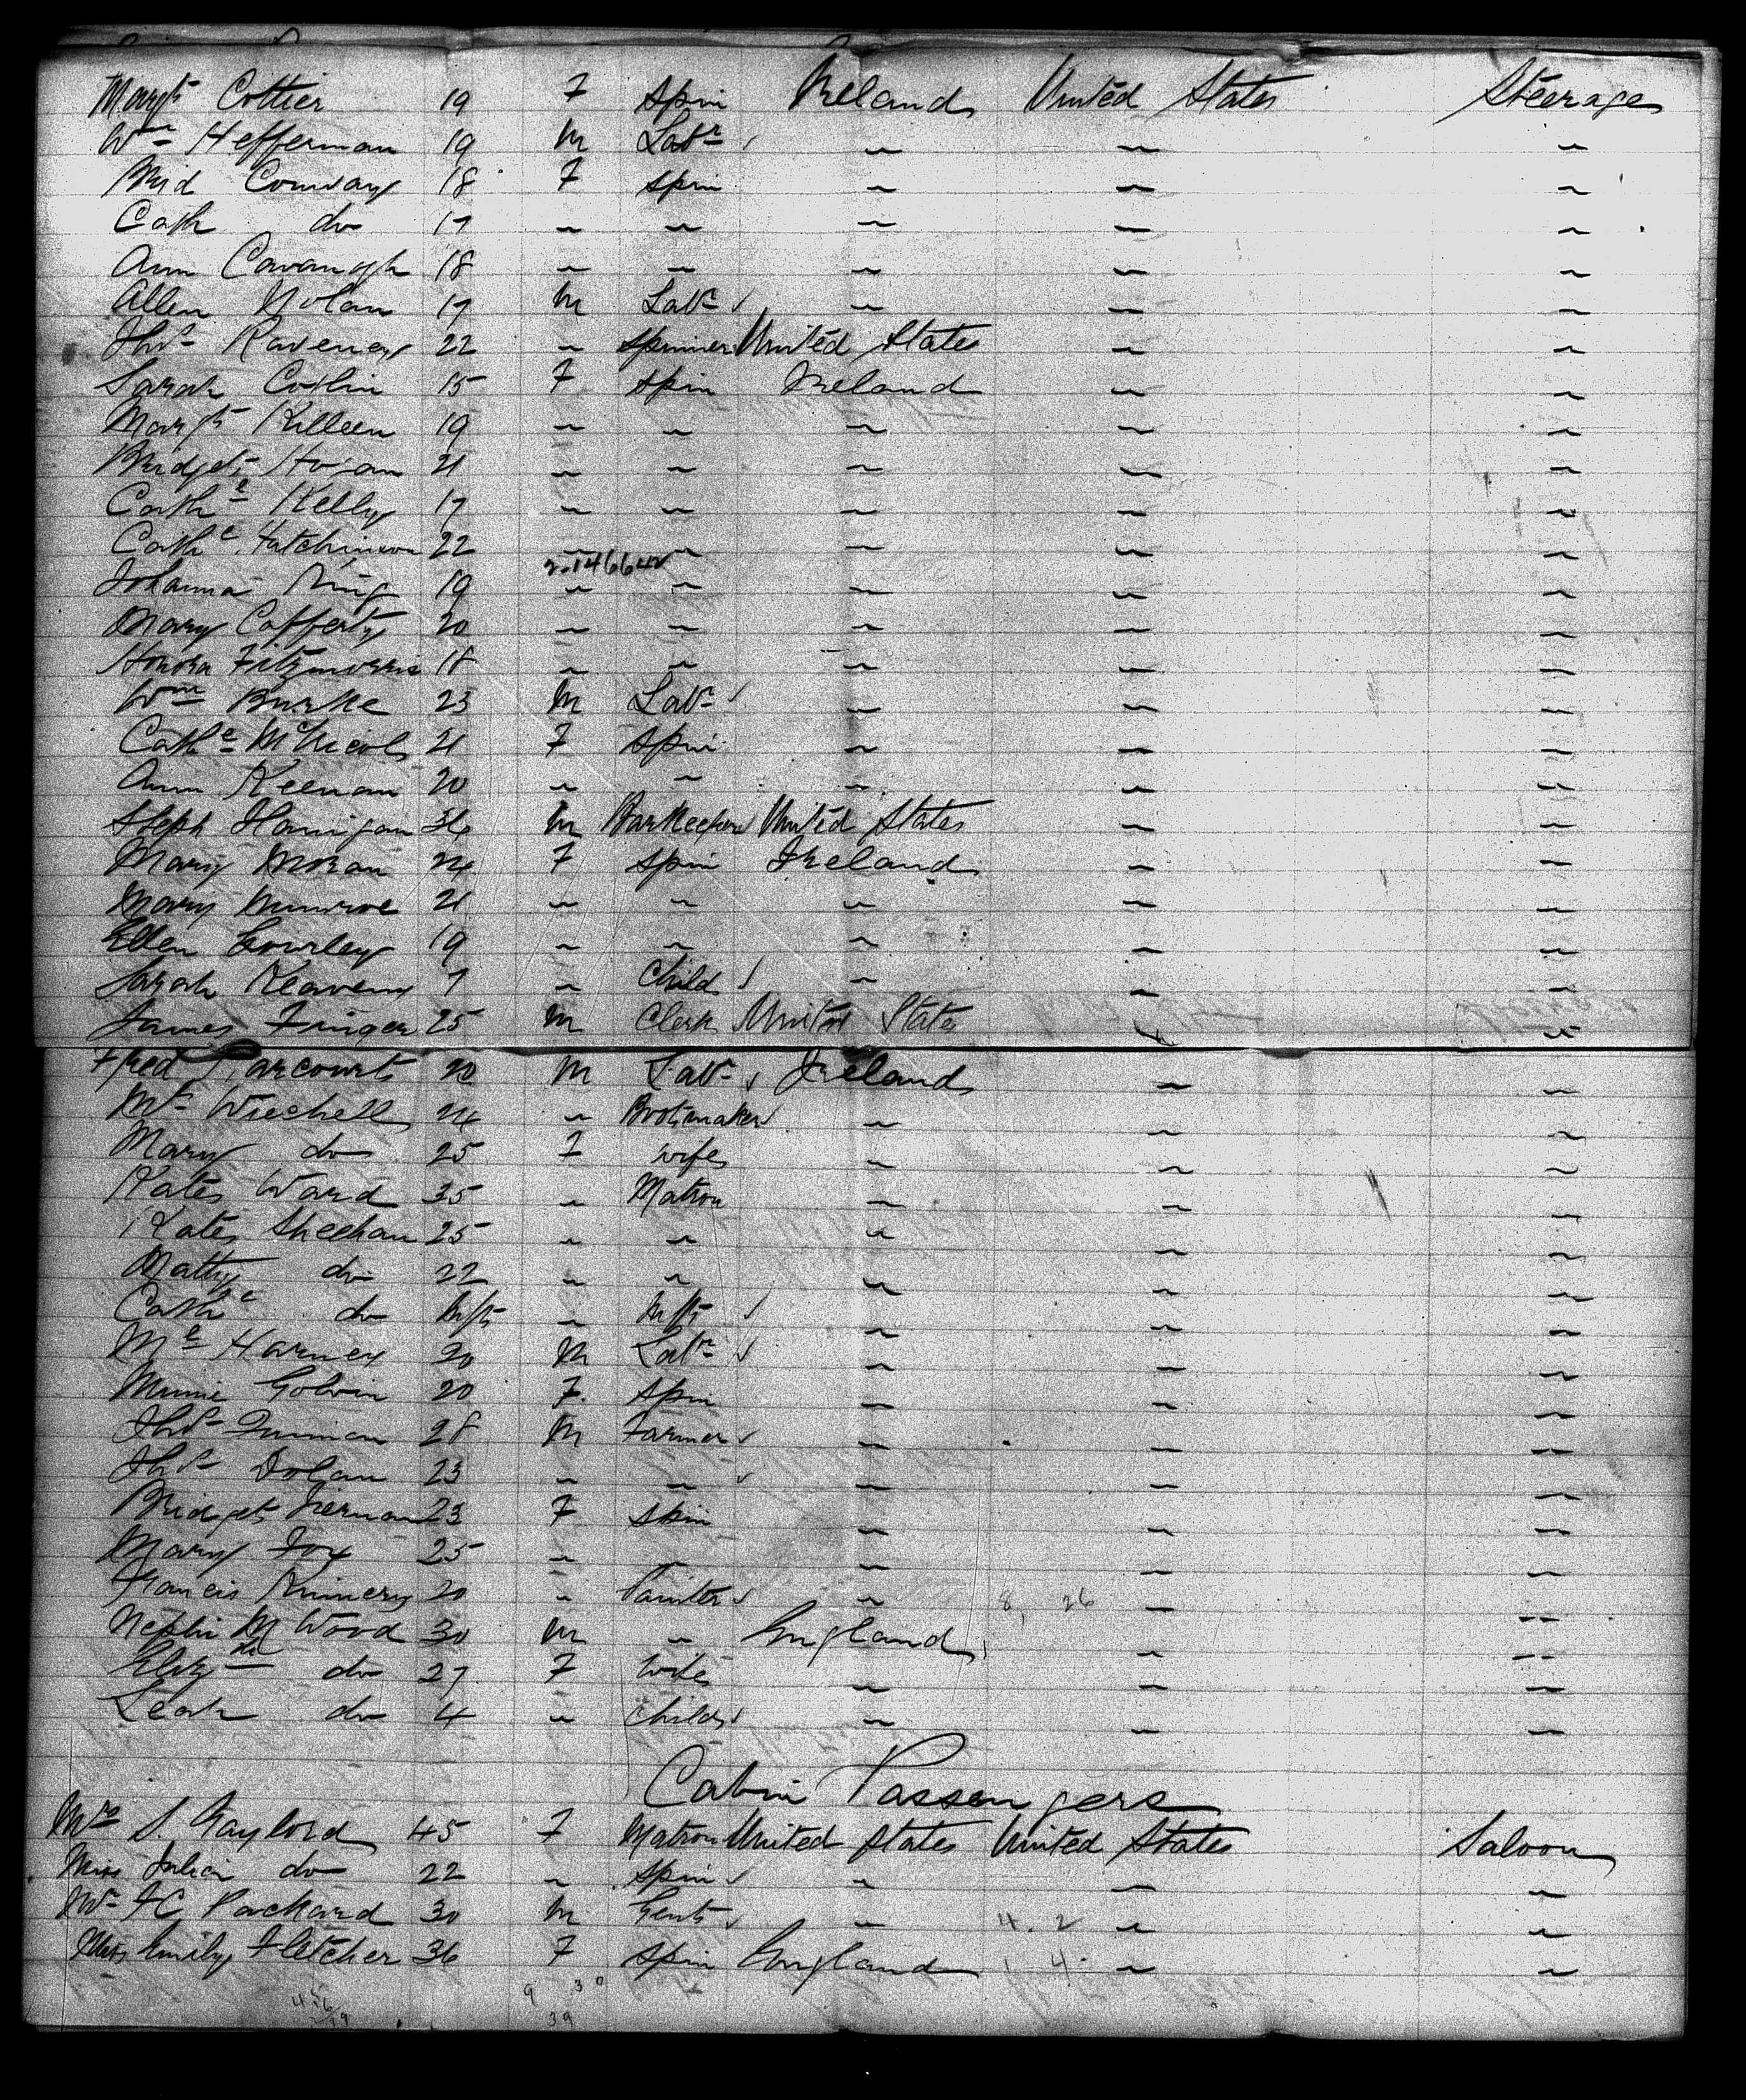 Margt Cottier 19 F Spin Ireland United States Steerage
Wm Hefferman 19 M Labr ~ ~ ~
Brid Conway 18 F Spin ~ ~ ~
Cath do 17 ~ ~ ~ ~ ~
Ann Cavanagh 18 ~ ~ ~ ~ ~
Allen Nolan 17 M Labr ~ ~ ~
Thos Raveney 22 ~ Spinner United States ~ ~
Sarah 15 F Spin Ireland ~ ~
Margt Killeen 19 ~ ~ ~ ~ ~
Bridget Hogan 21 ~ ~ ~ ~ ~
Cathe Kelly 17 ~ ~ ~ ~ ~
Cathe Hutchinson 22 ~ ~ ~ ~ ~
Johanna King 19 ~ ~ ~ ~ ~
Mary Cafferty 20 ~ ~ ~ ~ ~
Honora Fitzmorris 18 ~ ~ ~ ~ ~
Wm Burke 23 M Labr ~ ~ ~
Cathe McNicol 21 F Spin ~ ~ ~
Ann Keenan 20 ~ ~ ~ ~ ~
Steph Hanigan 36 M Barkeeper United States ~ ~
Mary Moran 24 F Spin Ireland ~ ~
Mary Munroe 21 ~ ~ ~ ~ ~
Ellen Cowley 19 ~ ~ ~ ~ ~
Sarah Keaveny 7 ~ Child ~ ~ ~
James Finger 25 M Clerk United States ~ ~
Fred Harcourt 20 M Labr Ireland ~ ~
24 ~ Bootmaker ~ ~ ~
Mary do 25 F Wife ~ ~ ~
Kate Ward 35 ~ Matron ~ ~ ~
Kate Sheehan 25 ~ ~ ~ ~ ~
Matty do 22 ~ ~ ~ ~ ~
Cathe do Inft ~ Inft ~ ~ ~
Harney 20 M Labr ~ ~ ~
Minnie Golvin 20 F Spin ~ ~ ~
Thos 28 M Farmer ~ ~ ~
Thos Dolan 23 ~ ~ ~ ~ ~
Bridget Tiernan 23 F Spin ~ ~ ~
Mary Fox 25 ~ ~ ~ ~ ~
Francis 20 ~ Painter ~ ~ ~
M Wood 30 M ~ England ~ ~
Elizth do 27 F Wife ~ ~ ~
Leah do 4 ~ Child ~ ~ ~
Cabin Passengers
Mrs S. Gaylord 45 F Matron United States United States Saloon
Miss Julia do 22 ~ Spin ~ ~ ~
Mr Packard 30 M Gent ~ ~ ~
Miss Emily Fletcher 36 F Spin England ~ ~